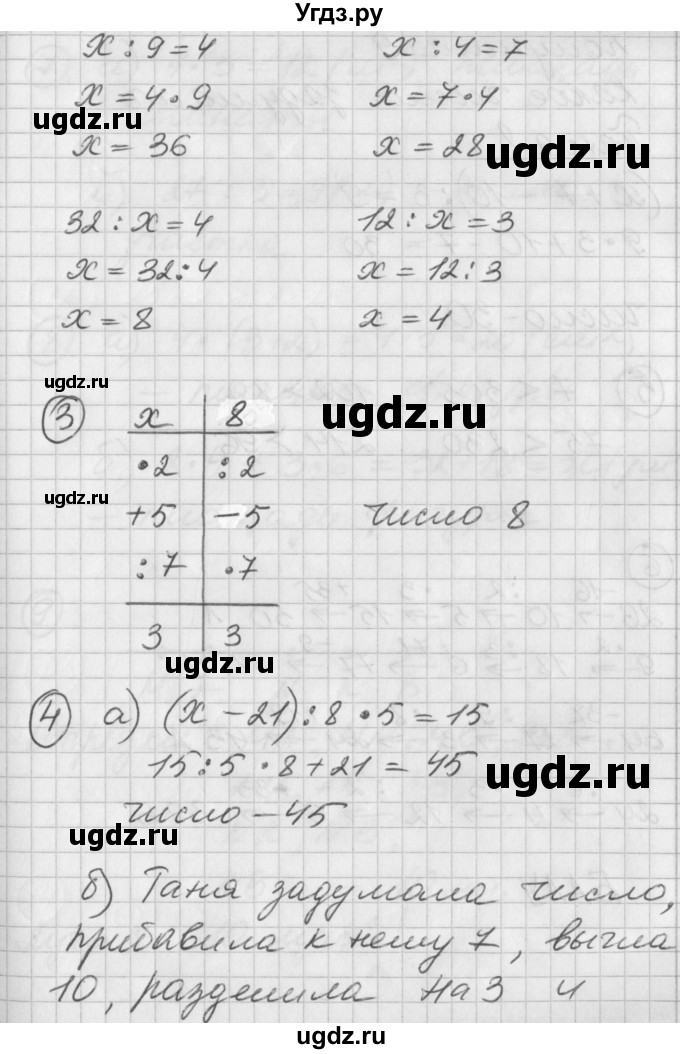 Угдз.ру
x : 9 = 4    x : 4 = 7
x = 4 • 9    x = 7 • 4
ugdz.ru
x = 36    x = 28
ugdz.ru
32 : x = 4    12 : x = 3
x = 32 : 4    x = 12 : 3
x = 8    x = 4
ugdz.ru
ugdz.ru
3    x | 8
• 2 | : 2
ugdz.ru
+5 | −5    число 8
: 7 | • 7
3 | 3
ugdz.ru
4    а) (x − 21) : 8 • 5 = 15
15 : 5 • 8 + 21 = 45
ugdz.ru
число − 45
ugdz.ru
б) Таня задумала число,
прибавила к нему 7, вычла
10, разделила на 3 и
ugdz.ru